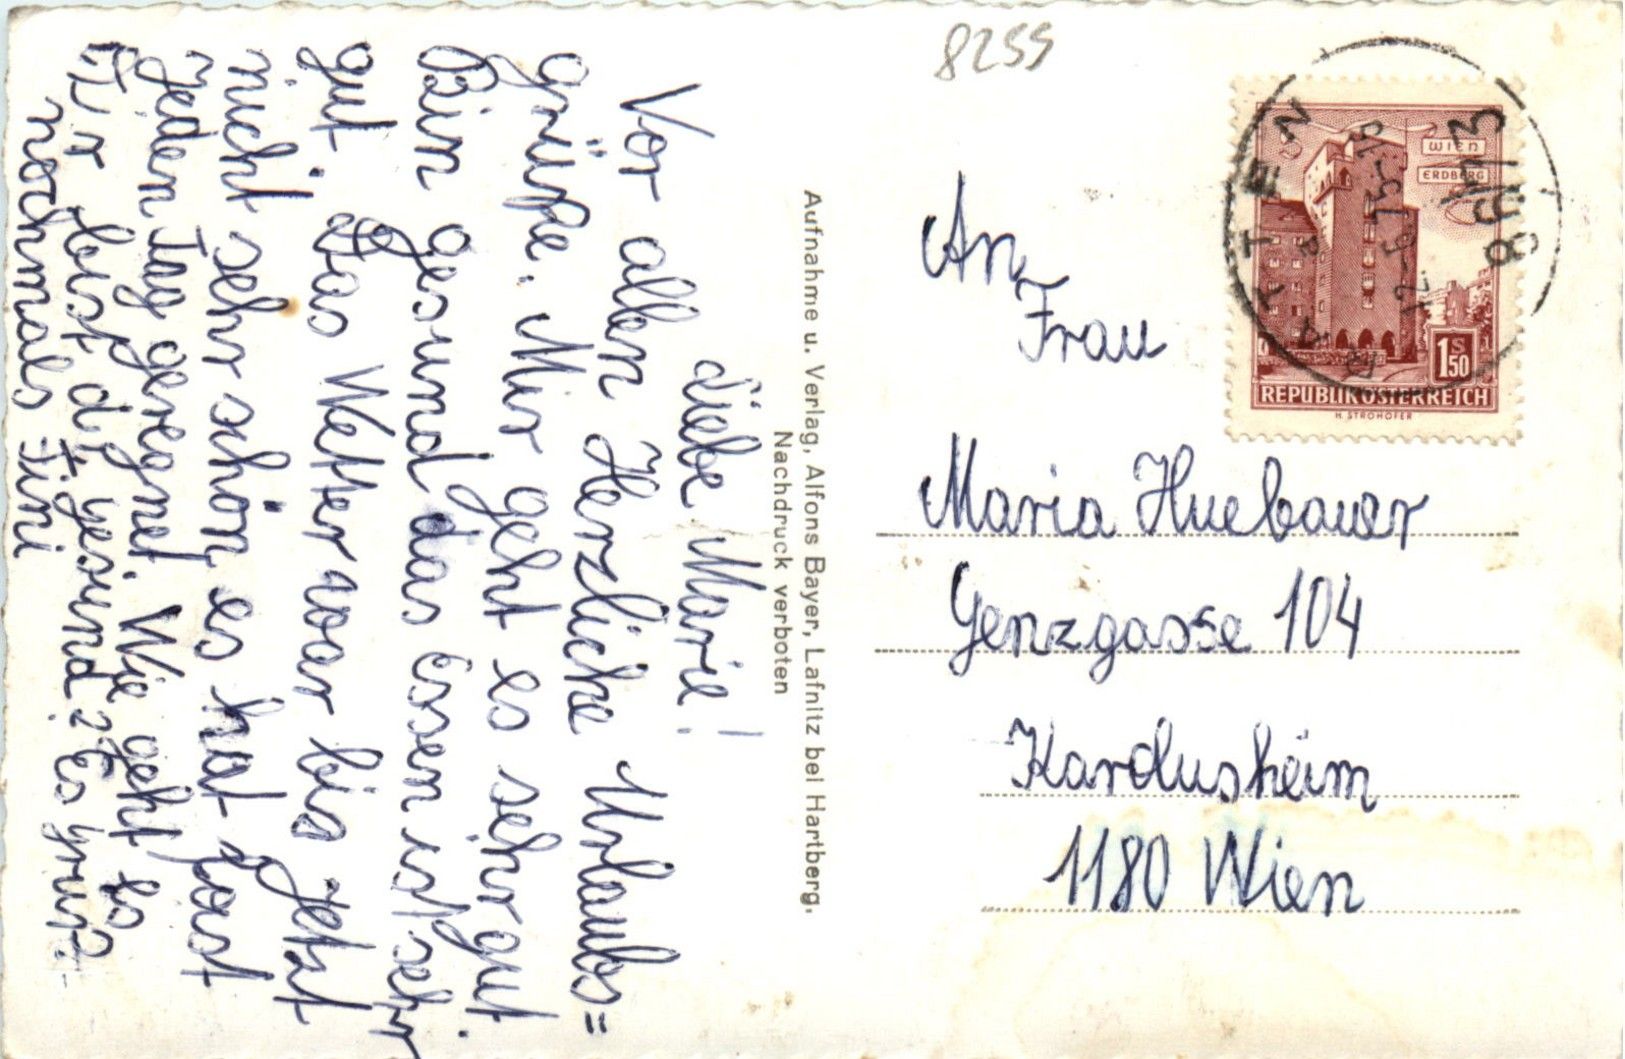 Liebe Marie!
Vor allen Herzliche Urlaubs=
grüße. Mir geht es sehr gut.
Bin gesund das Essen ist sehr
gut. Das Wetter war bis jetzt
nicht sehr schön, es hat fast
jeden Tag geregnet. Wie geht es
Dir bist du gesund? Es grüßt
nochmals Fini
Aufnahme u. Verlag, Alfons Bayer, Lafnitz bei Hartberg.
Nachdruck verboten
8255
An
Frau
Maria Huebauer
Genzgasse 104
Karolusheim
1180 Wien
WIEN
ERDBERG
1 S 50
REPUBLIK ÖSTERREICH
H. STROHOFER
12.-5.6.75-19
a